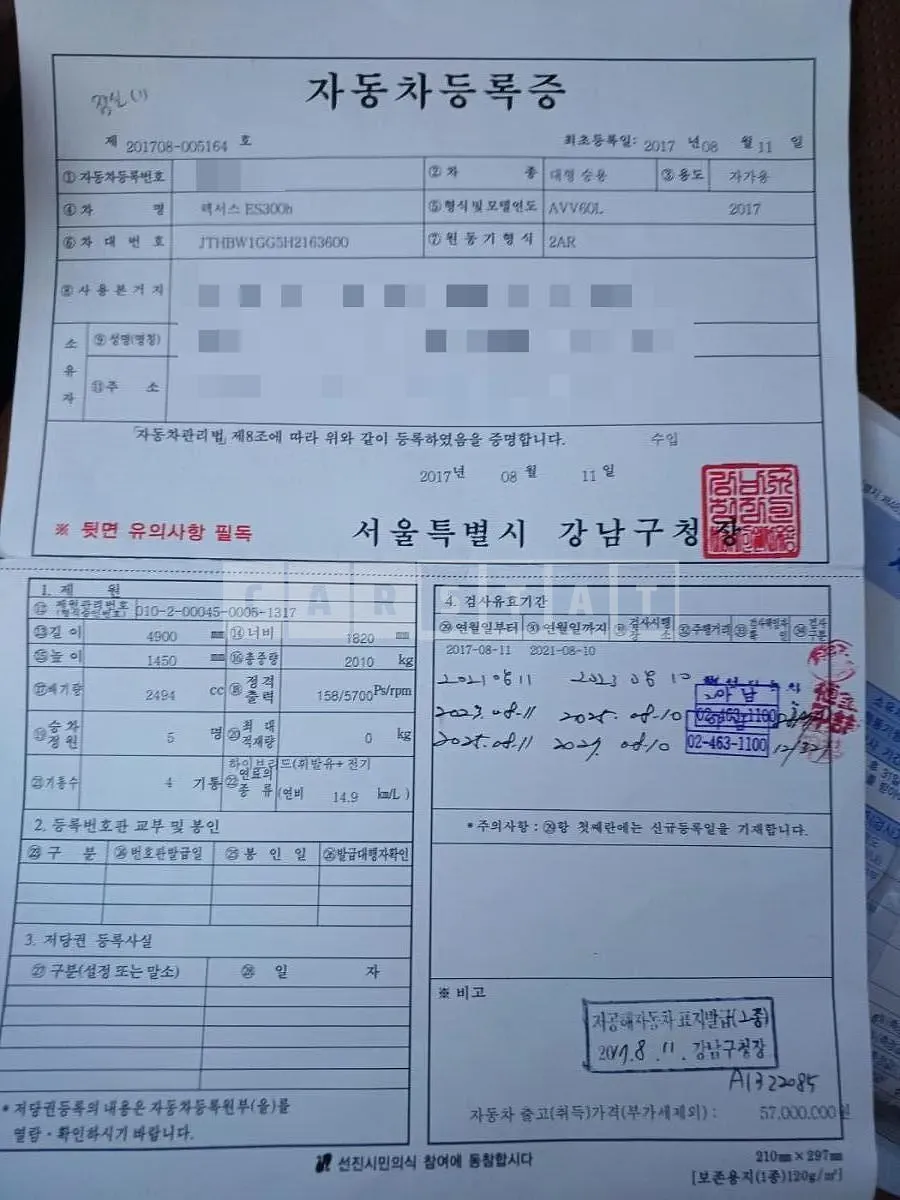 자동차등록증
제 201708-005164 호
최초등록일: 2017 년 08 월 11 일
①자동차등록번호
②차 종 대형 승용 ③용도 자가용
④차 명 렉서스 ES300h ⑤형식 및 모델연도 AVV60L 2017
⑥차대번호 JTHBW1GG5H2163600 ⑦원동기형식 2AR
⑧사용본거지
소유자
⑨성명(명칭)
⑪주 소
「자동차관리법」 제8조에 따라 위와 같이 등록하였음을 증명합니다. 수입
2017년 08 월 11 일
※ 뒷면 유의사항 필독
서울특별시 강남구청장
CARSTAT
1. 제 원
⑫ 제원관리번호 (형식승인번호) 010-2-00045-0008-1317
⑬길이 4900 mm ⑭너비 1820 mm
⑮높이 1450 mm ⑯총중량 2010 kg
⑰배기량 2494 cc ⑱정격출력 158/5700 Ps/rpm
⑲승차정원 5 명 ⑳최대적재량 0 kg
㉑기통수 4 기통 ㉒연료의 종류 하이브리드(휘발유+전기 (연비 14.9 km/L)
2. 등록번호판 교부 및 봉인
㉓구 분 ㉔번호판발급일 ㉕봉 인 일 ㉖발급대행자확인
3. 저당권 등록사실
㉗구분(설정 또는 말소) ㉘ 일 자
* 저당권등록의 내용은 자동차등록원부(을)를
열람·확인하시기 바랍니다.
4. 검사유효기간
㉙연월일부터 ㉚연월일까지 ㉛검사시행장소 ㉜주행거리 ㉝검사책임자확인 ㉞검사구분
2017-08-11 2021-08-10
2021 08 11 2023 08 10
2023.08.11 2025.08.10 02-463-1100
2025.08.11 2027.08.10 02-463-1100
*주의사항 : ㉙항 첫째란에는 신규등록일을 기재합니다.
※ 비고
저공해자동차 표지발급(2종)
2017.8.11. 강남구청장
A1322085
자동차 출고(취득)가격(부가세제외) : 57,000,000원
선진시민의식 참여에 동참합시다
210㎜×297㎜
[보존용지(1종)120g/㎡]